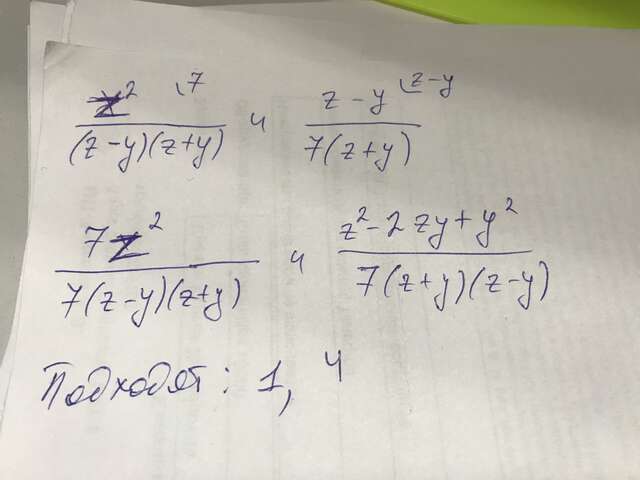 z² (7 / (z-y)(z+y) и z-y (z-y / 7(z+y)
7z² / 7(z-y)(z+y) и z²-2zy+y² / 7(z+y)(z-y)
Подходят: 1, 4